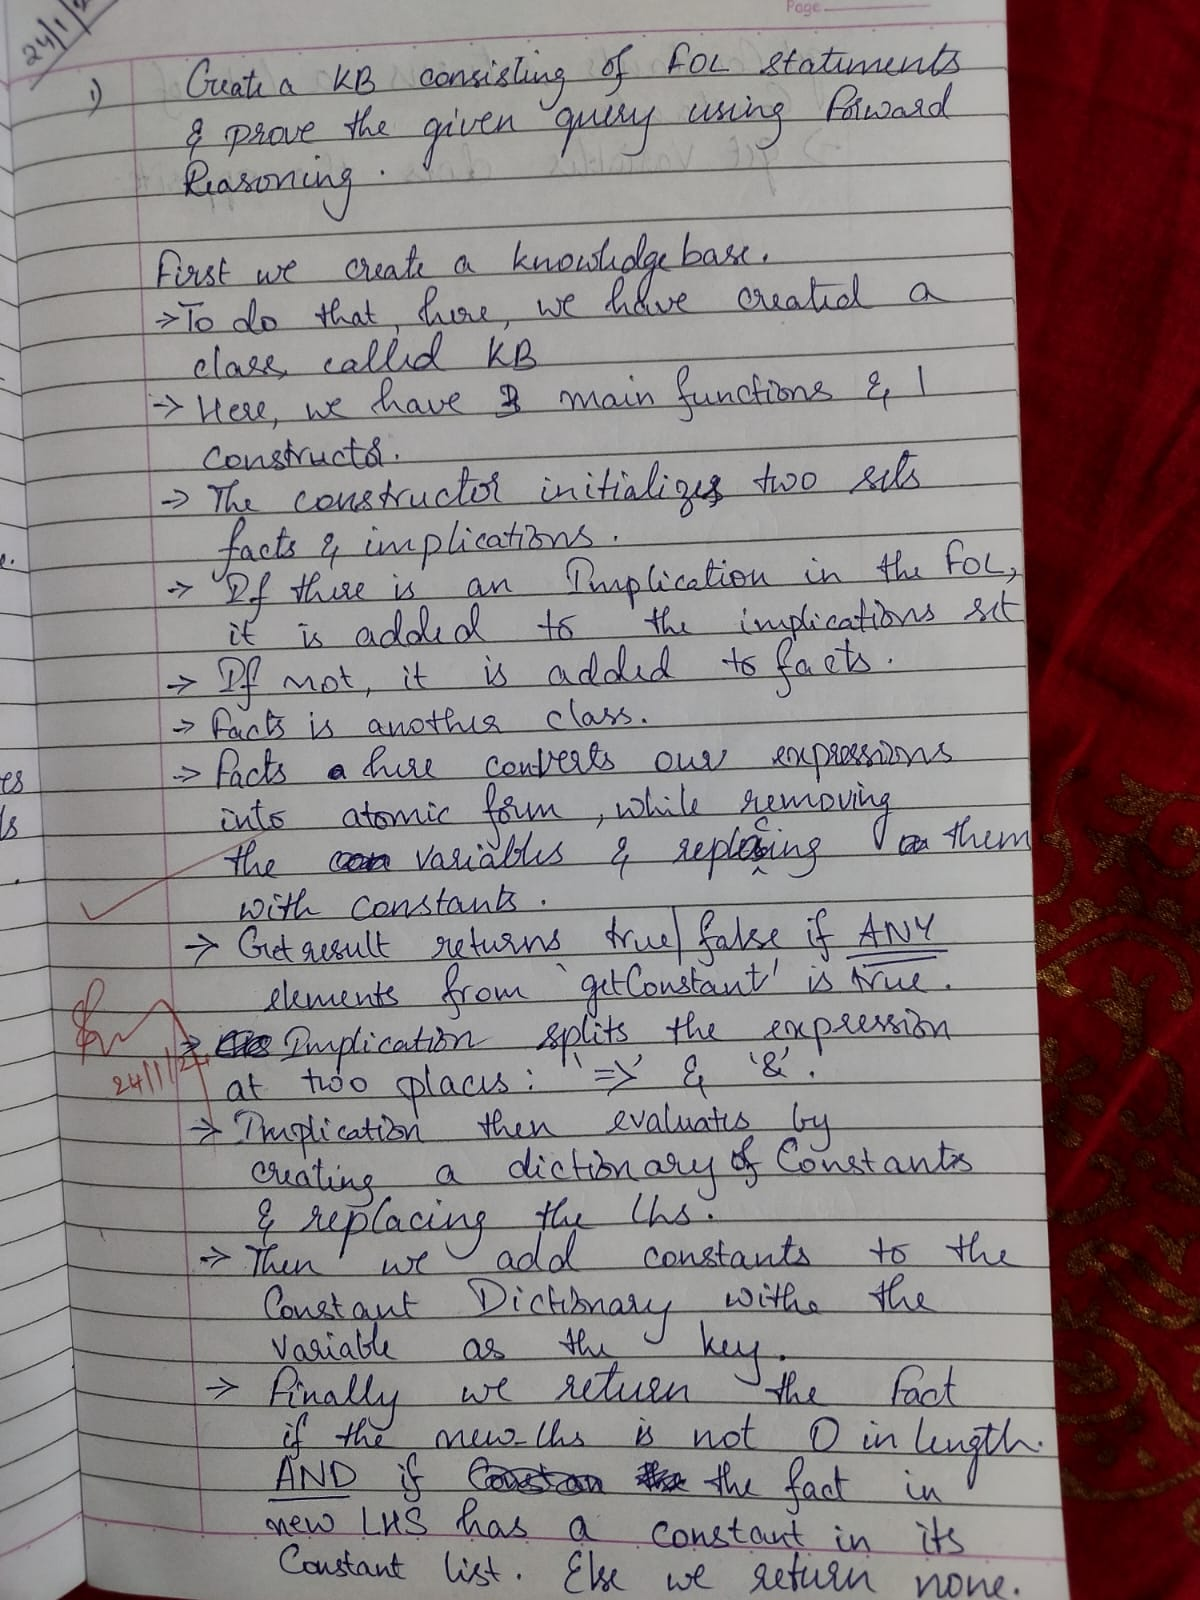 Page
24/1/2
1) Create a KB consisting of FOL statements
& prove the given query using Forward
Reasoning.
First we create a knowledge base.
→ To do that, here, we have created a
class called KB
→ Here, we have 3 main functions & 1
constructor.
→ The constructor initializes two sets
facts & implications.
→ If there is an Implication in the FOL,
it is added to the implications set
→ If not, it is added to facts.
→ Facts is another class.
→ Facts here converts our expressions
into atomic form, while removing
the variables & replacing them
with constants.
→ Get result returns true/false if ANY
elements from 'getConstant' is true.
→ Implication splits the expression
at two places: '=>' & '&'.
24/1/24
→ Implication then evaluates by
creating a dictionary of Constants
& replacing the lhs.
→ Then we add constants to the
Constant Dictionary withe the
variable as the key.
→ Finally we return the fact
if the new-lhs is not 0 in length.
AND if the fact in
new LHS has a constant in its
Constant list. Else we return none.
e.
es
ls